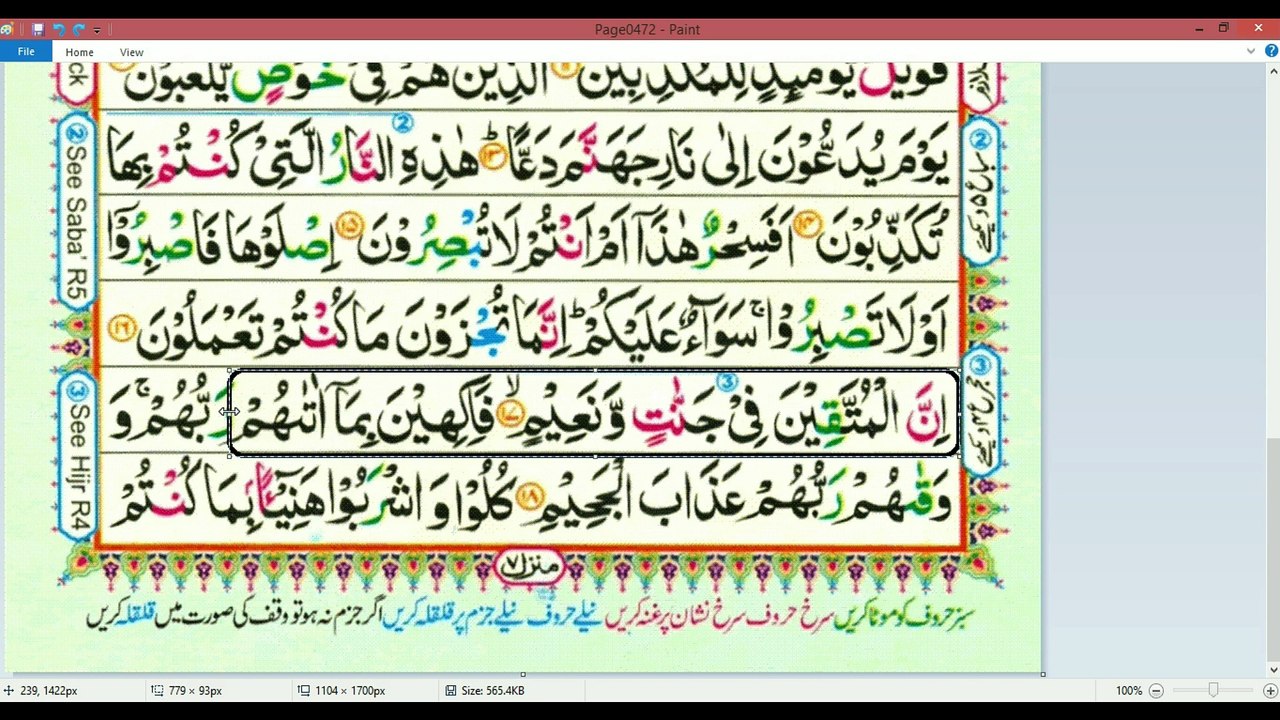 Page0472 - Paint
File Home View
فَوَيْلٌ يَّوْمَئِذٍ لِّلْمُكَذِّبِيْنَ ۝۱۱ الَّذِيْنَ هُمْ فِيْ خَوْضٍ يَّلْعَبُوْنَ
يَوْمَ يُدَعُّوْنَ اِلٰى نَارِ جَهَنَّمَ دَعًّاؕ ۝۱۳ هٰذِهِ النَّارُ الَّتِيْ كُنْتُمْ بِهَا
تُكَذِّبُوْنَ ۝۱۴ اَفَسِحْرٌ هٰذَاۤ اَمْ اَنْتُمْ لَا تُبْصِرُوْنَ ۝۱۵ اِصْلَوْهَا فَاصْبِرُوْۤا
اَوْ لَا تَصْبِرُوْاۚ سَوَآءٌ عَلَيْكُمْؕ اِنَّمَا تُجْزَوْنَ مَا كُنْتُمْ تَعْمَلُوْنَ ۝۱۶
اِنَّ الْمُتَّقِيْنَ فِيْ جَنّٰتٍ وَّنَعِيْمٍۙ ۝۱۷ فَاكِهِيْنَ بِمَاۤ اٰتٰىهُمْ رَبُّهُمْۚ وَ
وَقٰىهُمْ رَبُّهُمْ عَذَابَ الْجَحِيْمِ ۝۱۸ كُلُوْا وَ اشْرَبُوْا هَنِيْٓـئًۢا بِمَا كُنْتُمْ
② See Saba' R5
③ See Hijr R4
منزل ۷
سبز حروف کو موٹا کریں سرخ حروف سرخ نشان پر غنہ کریں نیلے حروف نیلے جزم پر قلقلہ کریں اگر جزم نہ ہو تو وقف کی صورت میں قلقلہ کریں
239, 1422px 779 × 93px 1104 × 1700px Size: 565.4KB 100%